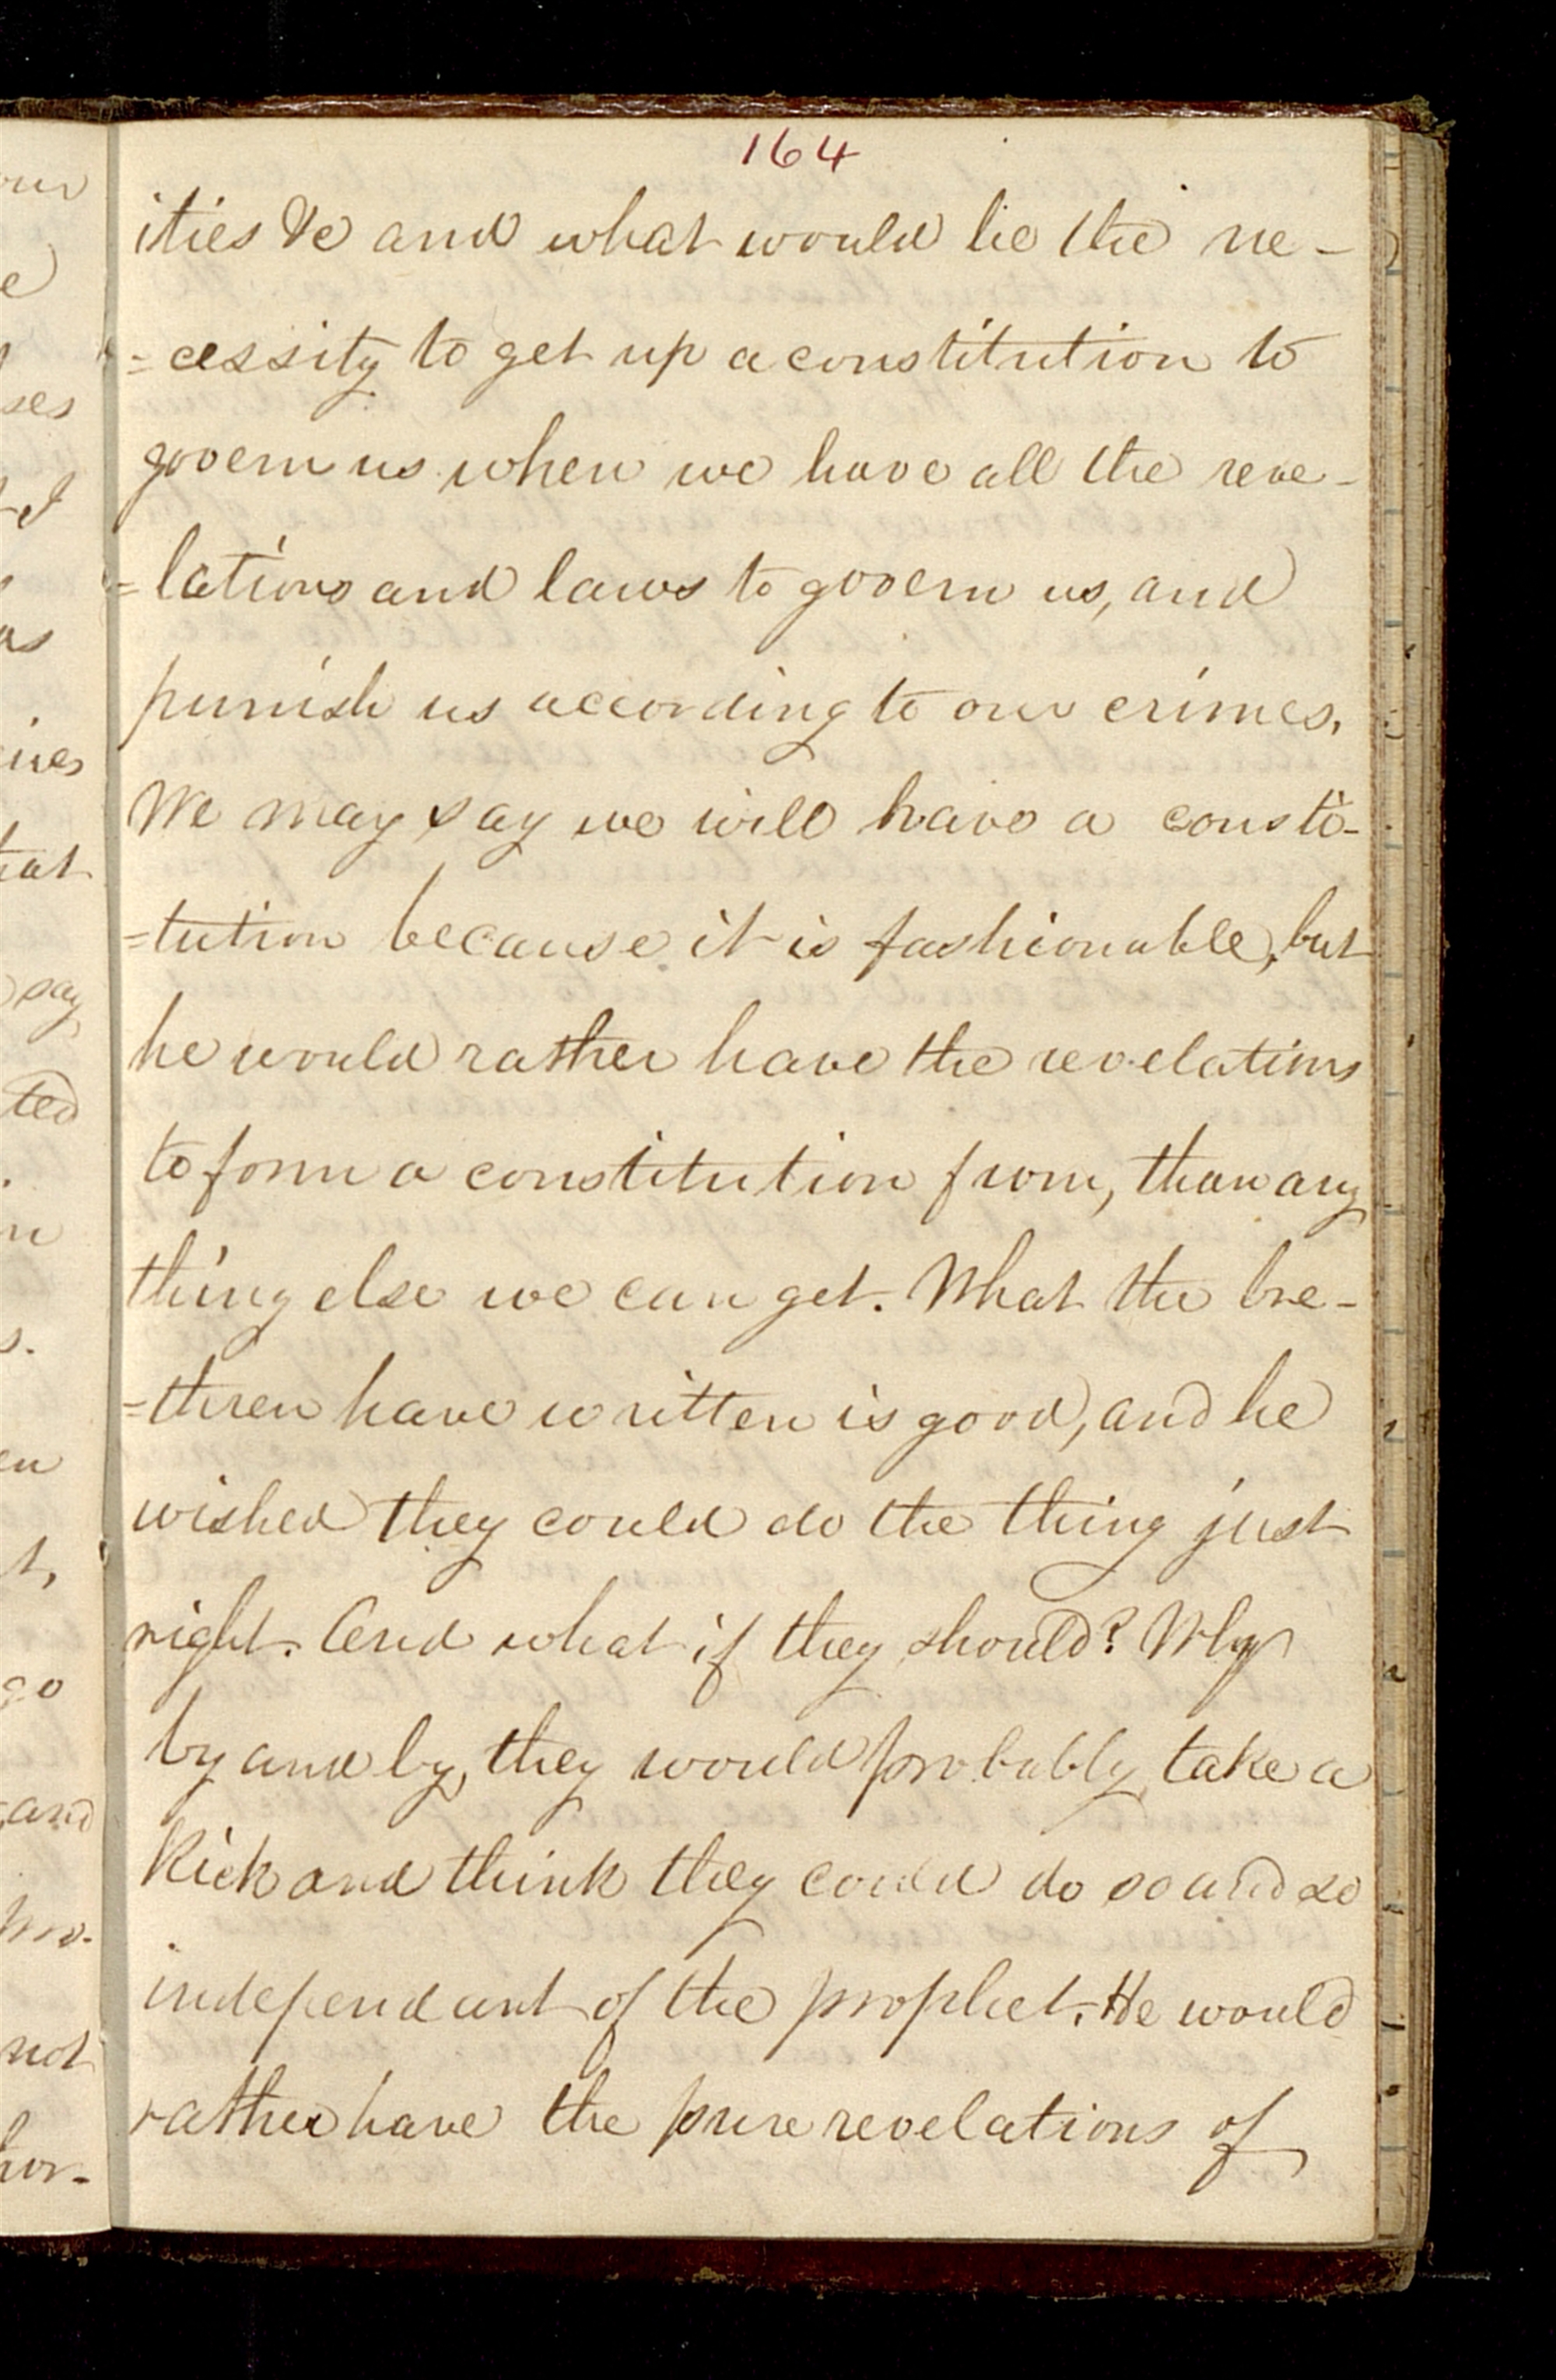 164
ities &c and what would be the ne-
=cessity to get up a constitution to
govern us when we have all the reve-
=lations and laws to govern us, and
punish us according to our crimes.
We may say we will have a consti-
=tution because it is fashionable, but
he would rather have the revelations
to form a constitution from, than any
thing else we can get. What the bre-
=thren have written is good, and he
wished they could do the thing just
right. And what if they should? Why
by and by, they would probably take a
kick and think they could do so and so
independant of the prophet. He would
rather have the pure revelations of
our
e
ses
as
ines
say
ted
n
s.
en
t,
go
and
pro-
not
hor-